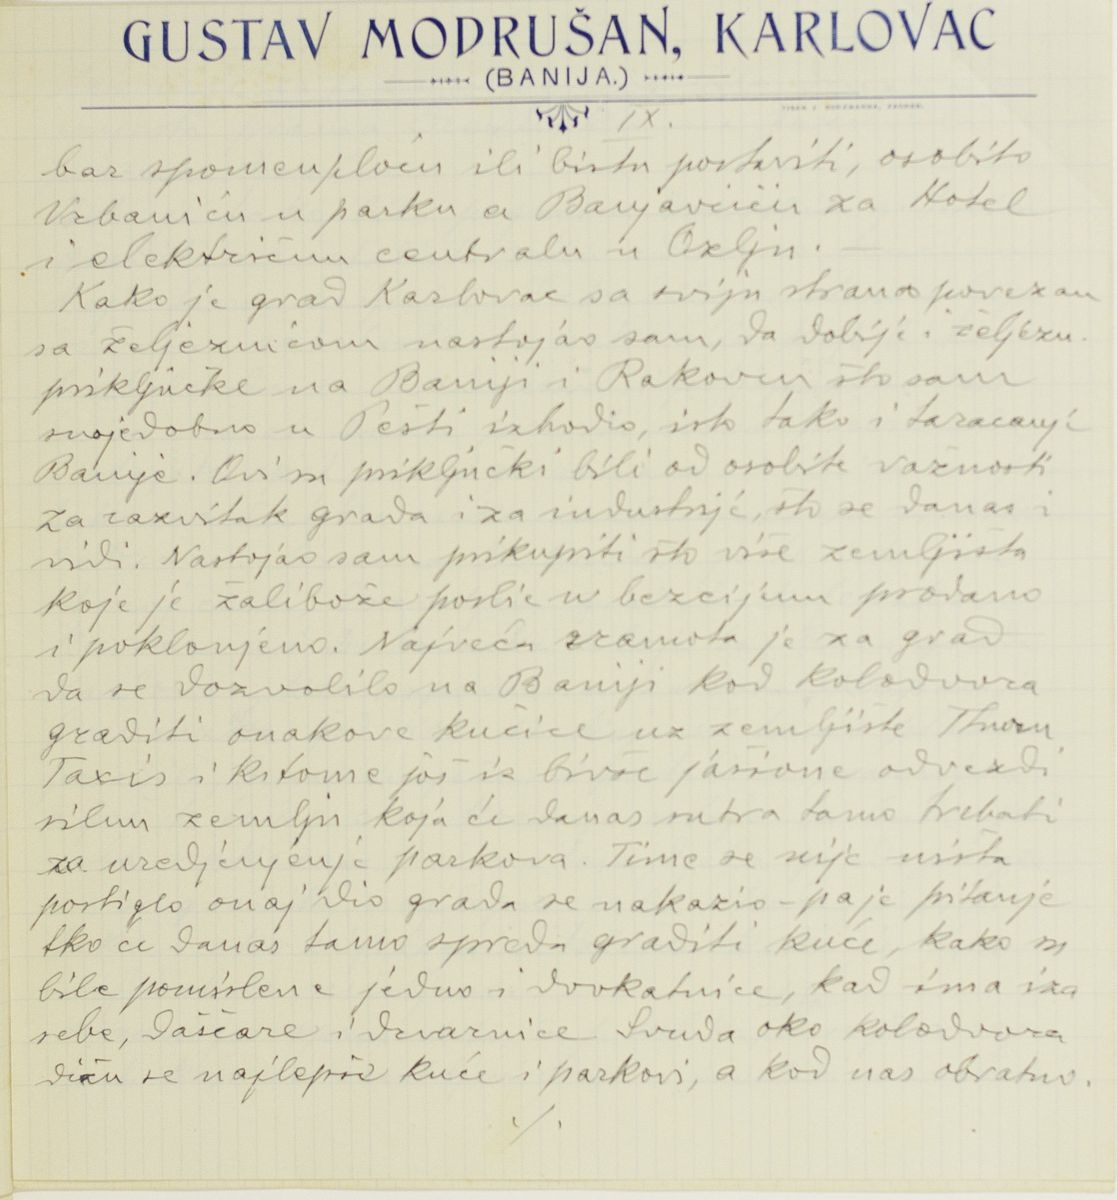 GUSTAV MODRUŠAN, KARLOVAC
(BANIJA.)
IX.
bar spomenploču ili bistu postaviti, osobito
Vrbaniću u parku a Banjavčiću za Hotel
i električnu centralu u Ozlju. —
Kako je grad Karlovac sa sviju strana povezan
sa željeznicom nastojao sam, da dobije i željezn.
priključke na Baniji i Rakovcu što sam
svojedobno u Pešti ishodio, isto tako i taracanje
Banije. Ovi su priključki bili od osobite važnosti
za razvitak grada i za industrije, što se danas i
vidi. Nastojao sam prikupiti što više zemljišta
koje je žalibože poslie u bezcijenu prodano
i poklonjeno. Najveća sramota je za grad
da se dozvolilo na Baniji kod kolodvora
graditi onakove kućice uz zemljište Thurn
Taxis i k tome još iz bivše jášione odvezdi
silnu zemlju koja će danas sutra tamo trebati
za uredjenjenje parkova. Time se nije ništa
postiglo onaj dio grada se nakazio – pa je pitanje
tko će danas tamo spreda graditi kuće, kako su
bile pomišlene jedno i dvokatnice, kad ima iza
sebe, daščare i drvarnice Svuda oko kolodvora
dižu se najlepše kuće i parkovi, a kod nas obratno.
./.